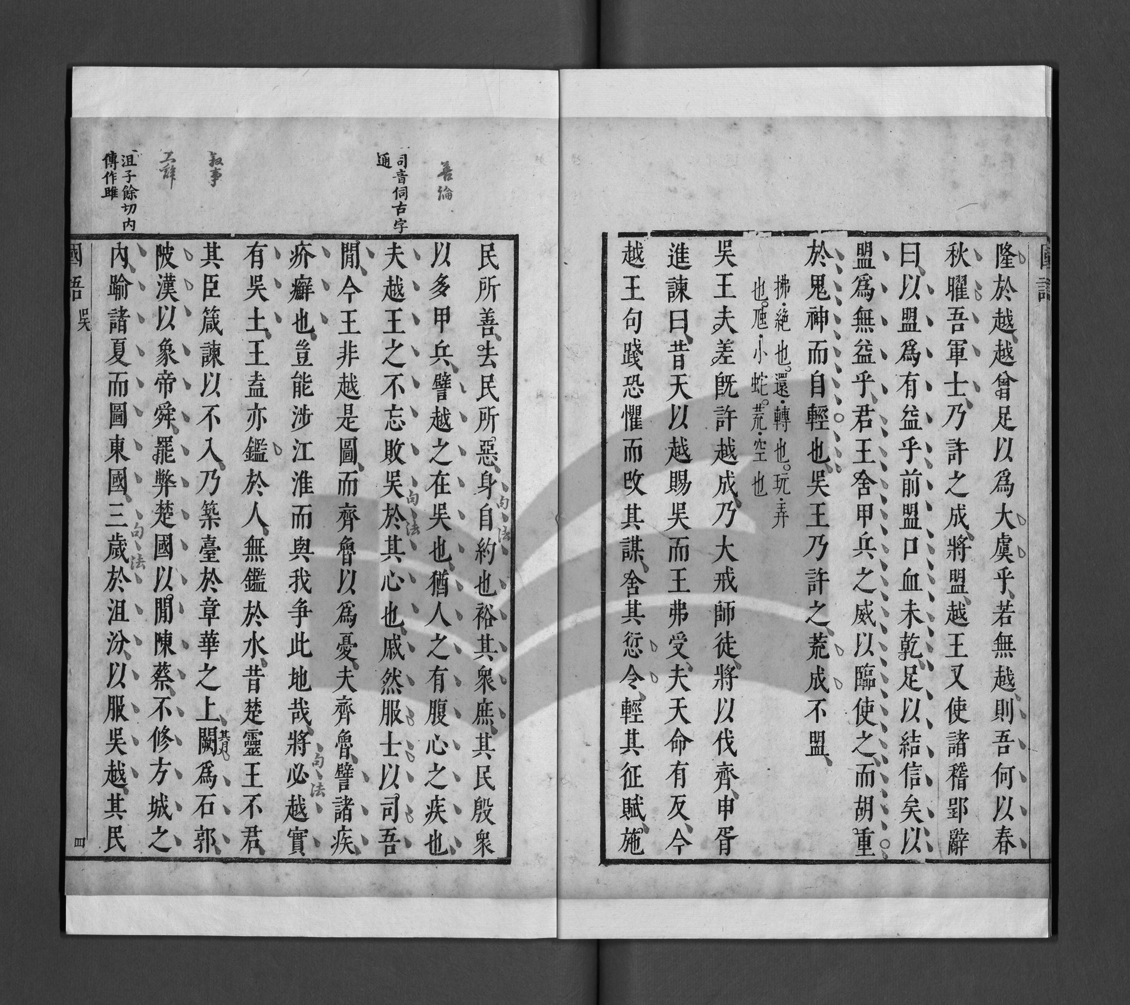 國語
隆於越越曾足以爲大虞乎若無越則吾何以春
秋曜吾軍士乃許之成將盟越王又使諸稽郢辭
曰以盟爲有益乎前盟口血未乾足以結信矣以
盟爲無益乎君王舍甲兵之威以臨使之而胡重
於鬼神而自輕也吳王乃許之荒成不盟
拂絶也還轉也玩弄
也虺小蛇荒空也
吳王夫差旣許越成乃大戒師徒將以伐齊申胥
進諫曰昔天以越賜吳而王弗受夫天命有反今
越王句踐恐懼而改其謀舍其愆令輕其征賦施
民所善去民所惡身自約也裕其衆庶其民殷衆
以多甲兵譬越之在吳也猶人之有腹心之疾也
夫越王之不忘敗吳於其心也戚然服士以司吾
閒今王非越是圖而齊魯以爲憂夫齊魯譬諸疾
疥癬也豈能涉江淮而與我爭此地哉將必越實
有吳土王盍亦鑑於人無鑑於水昔楚靈王不君
其臣箴諫以不入乃築臺於章華之上闕爲石郭
陂漢以象帝舜罷弊楚國以閒陳蔡不修方城之
內踰諸夏而圖東國三歲於沮汾以服吳越其民
國語 吳 四
善論
司音伺古字
通
叙事
工辞
沮子餘切內
傳作雎
句法
句法
句法
句法
其月